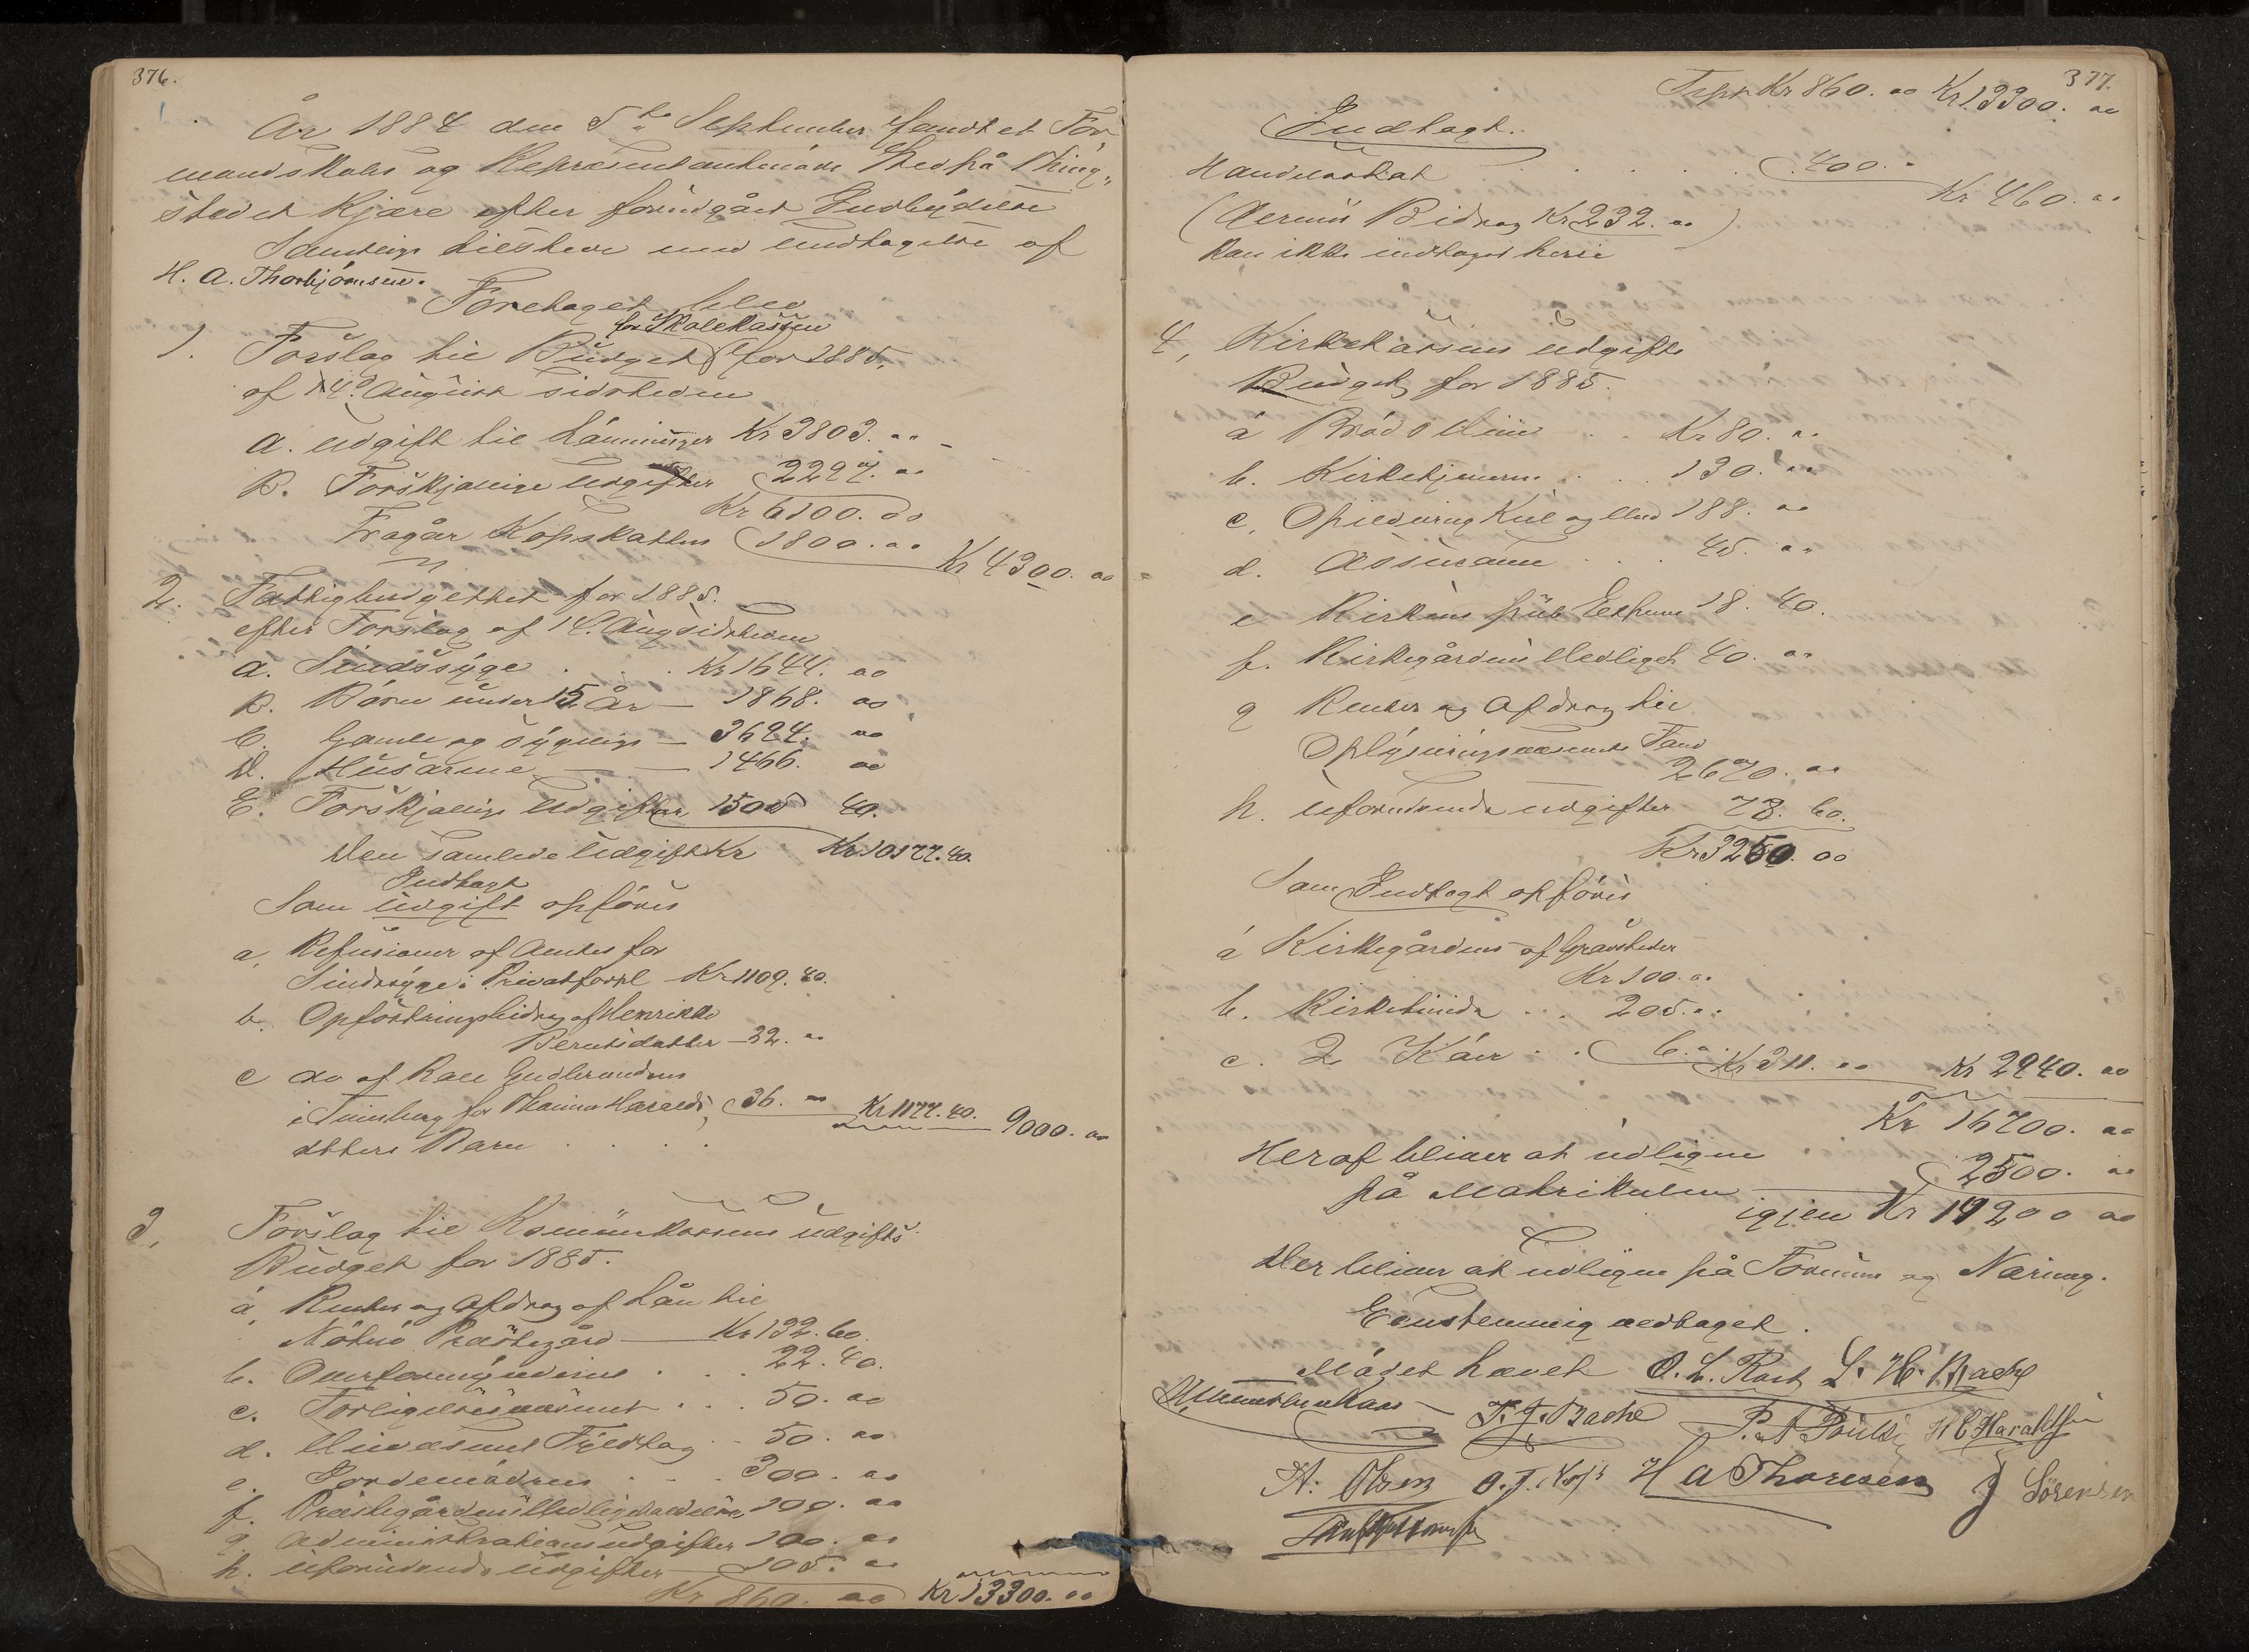 376.
År 1884 den 5te September fandt et For
mandskabs og Repræsentantmøde Sted på Thing„
stedet Kjære efter foregået Indbydelse
Samtlige tilstede med Undtagelse af
H. A. Thorbjörnsen.
Foretaget blev
for Skolekassen
1. Forslag til Budget for 1885.
af 14d August sidstleden
a. Udgift til Lønninger Kr 3803. 00
B. Forskjællige Udgifter 2297. 00
Kr 6100. 00
Fragår Kopskatten 1800. 00 Kr 4300. 00
2. Fattigbudgettet for 1885.
efter Forslag af 14. Aug sidstleden
a. Sindssyge . . . Kr 1644. 00
B. Børn under 15 År — 1868. 00
C. Gamle og sygelige — 3694. 00
D. Husarme — — 1466. 00
E. Forskjællige Udgifter 1505 40.
Den samlede Udgift Kr Kr 10177. 40.
Indtægt
Som Udgift opføres
a, Refusioner af Amtet for
Sindssyge i Privatforpl Kr 1109. 40.
b. Opfostringsbidrag af Henrikke
Berntsdatter — 32. 00
c do af Karl Gudbrandsen
i Tønsberg for Maina Haralds 36. 00 Kr 1177. 40. 9000. 00
dtters Barn . . . .
3, Forslag til Komunekassens Udgifts
Budget for 1885.
a, Renter og Afdrag af Lån til
Nøtterø Præstegård — Kr 132. 60.
b. Overformynderiet . . . 22. 40.
c. Forligelsesvæsenet . . . 50. 00
d. Uveæsnet Fjeldtag . 50. 00
e. Jordemødrene . . . 300. 00
f. Præstegårdens Vedligeholdelse 100. 00
g. Administrationsudgifter 100. 00
h. Uforudseende Udgifter — 105. 00
Kr 860. 00 Kr 13300. 00
377.
Trspt Kr 860. 00 Kr 13300. 00
Indtægt.
Handelsskat . . . . 400. "
Kr 460. 00
(Aernes Bidrag Kr 232. 00)
kan ikke indtages heri
4, Kirkekassens Udgifts
Budget for 1885.
a Brød o Viin . . Kr 80. 00
b. Kirketjenerne . . . 130. 00
c, Opildning Kul og Ved 188. 00
d. Assurance . . 45. 00
e Kirkens 18. 40.
f. Kirkegårdens Vedligeh 40. 00
g Renter og Afdrag til
Oplysningsvæsenets Fond
2670. 00
h. Uforudseende Udgifter 78. 60.
Kr 3250. 00
Som Indtægt opføres
a Kirkegårdens af Gravsteder
Kr 100. 00
b. Kirketiende . . . 205. 00
c. 2 Køer . . 6. 00 Kr 311. 00 Kr 2940. 00
Kr 16700. 00
Heraf bliver at udligne 2500. 00
på Matrikulen
igjen Kr 14200 00
Der bliver at udligne på Formue og Næring.
Eenstemmig vedtaget.
Mødet hævet O. L. Røst L. H. Bache
T. J. Bache P. A. Poulse H C Haraldsen
A. Olsen O. J. H a Thoresen J Sörensen